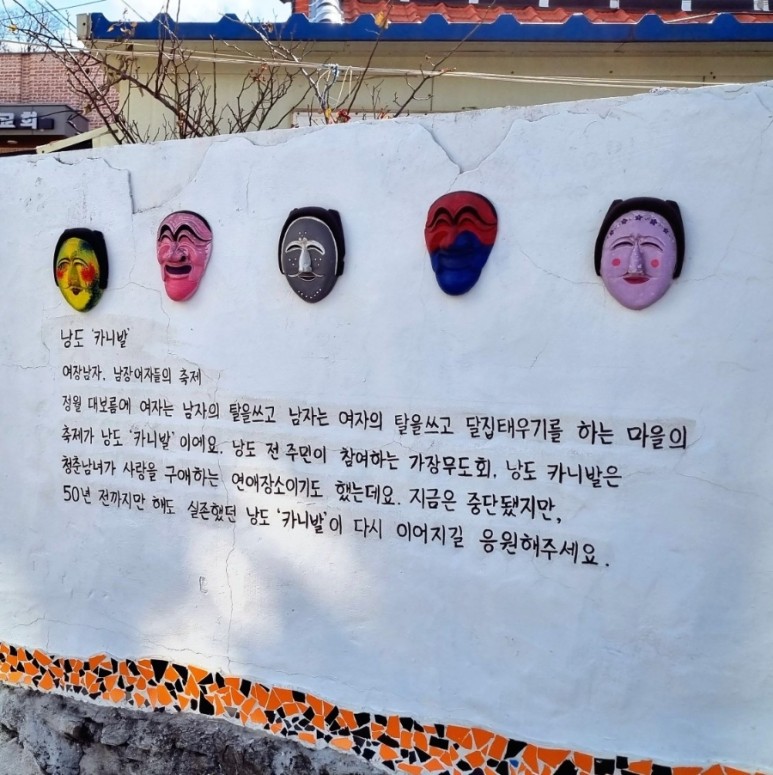 낭도 '카니발'
여장남자, 남장여자들의 축제
정월 대보름에 여자는 남자의 탈을쓰고 남자는 여자의 탈을쓰고 달집태우기를 하는 마을의
축제가 낭도 '카니발' 이에요. 낭도 전 주민이 참여하는 가장무도회. 낭도 카니발은
청춘남녀가 사랑을 구애하는 연애장소이기도 했는데요. 지금은 중단됐지만,
50년 전까지만 해도 실존했던 낭도 '카니발'이 다시 이어지길 응원해주세요.